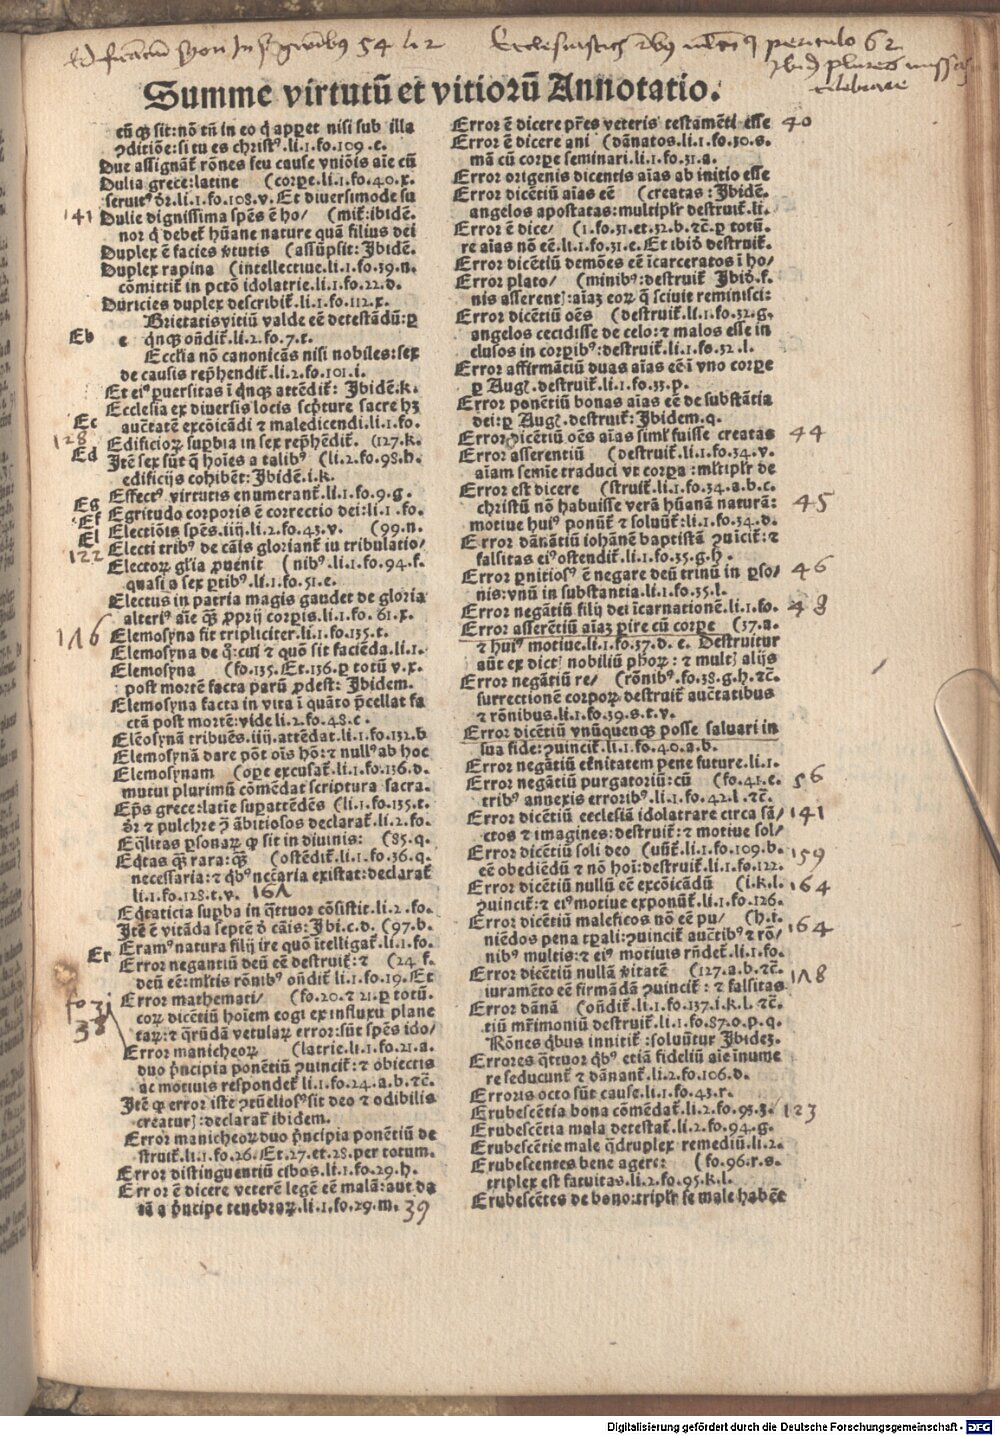 54 li 2
periculo 62
plures
celebrare
Summe virtutū et vitiorū Annotatio.
cū qͣ sit: nō tn̄ in eo qd̓ apꝑet nisi sub illa
ꝯditiōe: si tu es christꝰ.li.1.fo.109.c.
Due assignāt̄ rōnes seu cause vniōis aīe cū
Dulia grece: latine (corꝑe.li.1.fo.40.x.
seruitꝰ dr̄.li.1.fo.108.v. Et diuersimode su
141 Dulie dignissima spēs ē ho/ (mit̄: ibidē.
nor qd̓ debet̄ hūane nature quā filius dei
Duplex ē facies v̓tutis (assūpsit: Ibidē.
Duplex rapina (intellectiue.li.1.fo.39.n.
cōmittit̄ in pctō idolatrie.li.1.fo.22.d.
Duricies duplex describit̄.li.1.fo.112.x.
Brietatis vitiū valde eē detestādū: ꝑ
Eb e qͥnqꝫ oñdit̄.li.2.fo.7.t.
Ecclīa nō canonicās nisi nobiles: sex
de causis rep̄hendit̄.li.2.fo.101.i.
Et eiꝰ ꝑuersitas ī qͥnqꝫ attēdit̄: Ibidē.k.
Ecclesia ex diuersis locis scpture sacre hꝫ
Ec auctatē excōicādi ⁊ maledicendi.li.1.fo.
128 Edificioꝝ suꝑbia in sex rep̄hēdit̄. (127.k.
Ed Itē sex sūt qͥ hoīes a talibꝰ (li.2.fo.98.h.
edificijs cohibēt: Ibidē.i.k.
Eg Effectꝰ virtutis enumerant̄.li.1.fo.9.g.
Ef Egritudo corporis ē correctio dei: li.1.fo.
El Electiōis spēs.iiij.li.2.fo.43.v. (99.n.
122 Electi tribꝰ de cāis gloriant̄ iu tribulatio/
Electoꝝ gl̄ia ꝓuenit (nibꝰ.li.1.fo.94.f.
quasi a sex ꝑtibꝰ.li.1.fo.51.e.
Electus in patria magis gaudet de gloria
alteriꝰ aīe qͣꝫ ꝓprij corpis.li.1.fo.61.x.
116 Elemosyna fit tripliciter.li.1.fo.135.t.
Elemosyna de qͣ: cuī ⁊ quō sit faciēda.li.1.
Elemosyna (fo.135.Et.136.ꝑ totū v.x.
post mortē facta parū ꝓdest: Ibidem.
Elemosyna facta in vita ī quāto p̄cellat fa
ctā post mortē: vide li.2.fo.48.c.
Elēosynā tribuēs.iiij.attēdat.li.1.fo.132.b
Elemosynā dare pōt oīs hō: ⁊ nullꝰ ab hoc
Elemosynam (oꝑe excusat̄.li.1.fo.136.d.
mutui plurimū cōmēdat scriptura sacra.
Ep̄s grece: latīe suꝑattēdēs (li.1.fo.135.t.
dr̄ ⁊ pulchre ꝯ̄ ābitiosos declarat̄.li.2.fo.
Eqͣlitas ꝑsonaꝝ ꝙ sit in diuinis: (85.q.
Eqͥtas qͣꝫ rara: qͣꝫ (ostēdit̄.li.1.fo.36.q.
necessaria: ⁊ qͥbꝰ nec̄aria existat: declarat̄
li.1.fo.128.t.v. 161
Eqͥtaticia suꝑba in qͣttuor cōsistit.li.2.fo.
Itē ē vitāda septē d̓ cāis: Ibi.c.d. (97.b.
Eramꝰ natura filij ire quō ītelligat̄.li.1.fo.
Er Error negantiū deū eē destruit̄: ⁊ (24 f.
deū eē: ml̄tis rōnibꝰ oñdit̄ li.1.fo.19.Et
fo 31 Error mathemati/ (fo.20.⁊ 21.ꝑ totū.
38 coꝝ dicētiū hoīem cogi ex influxu plane
taꝝ: ⁊ qͣrūdā vetulaꝝ error: sūt spēs ido/
Error manicheoꝝ (latrie.li.1.fo.21.a.
duo pͥncipia ponētiū ꝯuincit̄: ⁊ obiectis
ac motiuis respondet̄ li.1.fo.24.a.b.⁊c̄.
Itē ꝙ error iste ꝯtūeliosꝰ sit deo ⁊ odibilis
creatur]: declarat̄ ibidem.
Error manicheoꝝ duo pͥncipia ponētiū de
struit̄.li.1.fo.26.Et.27.et.28.per totum.
Error distinguentiū cibos.li.1.fo.29.h.
Error ē dicere veterē legē eē malā: aut da
tā a pͥncipe tenebraꝝ.li.1.fo.29.m. 39
Error ē dicere pr̄es veteris testamēti esse 40
Error ē dicere ani (dānatos.li.1.fo.30.s.
mā cū corꝑe seminari.li.1.fo.31.a.
Error origenis dicentis aīas ab initio esse
Error dicētiū aīas eē (creatas: Ibidē.
angelos apostatas: multipl̄r destruit̄.li.
Error ē dice/ (1.fo.31.et.32.b.⁊c̄.ꝑ totū.
re aīas nō eē.li.1.fo.31.e.Et ibid̓ destruit̄.
Error dicētiū demōes eē īcarceratos ī ho/
Error plato/ (minibꝰ: destruit̄ Ibid̓.f.
nis asserent]: aīaꝫ eoꝝ q̄ sciuit reminisci:
Error dicētiū oēs (destruit̄.li.1.fo.32.g.
angelos cecidisse de celo: ⁊ malos esse in
clusos in corꝑibꝰ: destruit̄.li.1.fo.32.l.
Error affirmātiū duas aīas eē ī vno corꝑe
ꝑ Augꝰ.destruit̄.li.1.fo.33.p.
Error ponētiū bonas aīas eē de substātia
dei: ꝑ Augꝰ.destruit̄: Ibidem.q.
Error dicētiū oēs aīas siml̄ fuisse creatas 44
Error asserentiū (destruit̄.li.1.fo.34.v.
aīam semīe traduci vt corꝑa: ml̄tipl̄r de
Error est dicere (struit̄.li.1.fo.34.a.b.c.
christū nō habuisse verā hūanā naturā: 45
motiue huiꝰ ponūt̄ ⁊ soluūt̄: li.1.fo.34.d.
Error dānātiū iohānē baptistā ꝯuīcit̄: ⁊
falsitas eiꝰ ostendit̄.li.1.fo.35.g.h.
Error ꝑnitiosꝰ ē negare deū trinū in ꝑso/ 46
nis: vnū in substantia.li.1.fo.35.l.
Error negātiū filij dei īcarnationē.li.1.fo. 48
Error asserētiū aīaꝫ ꝑire cū corꝑe (37.a.
⁊ huiꝰ motiue.li.1.fo.37.d.e. Destruitur
aūt ex dict] nobiliū pħoꝝ: ⁊ mult] alijs
Error negātiū re/ (rōnibꝰ.fo.38.g.h.⁊c̄.
surrectionē corpoꝝ destruit̄ auctatibus
⁊ rōnibus.li.1.fo.39.s.t.v.
Error dicētiū vnūquenqꝫ posse saluari in
sua fide: ꝯuincit̄.li.1.fo.40.a.b.
Error negātiū et̓nitatem pene future.li.1.
Error negātiū purgatoriū: cū (fo.41.e. 56
tribꝰ annexis erroribꝰ.li.1.fo.42.l.⁊c̄.
Error dicētiū ecclesiā idolatrare circa sā/ 141
ctos ⁊ imagines: destruit̄: ⁊ motiue sol/
Error dicētiū soli deo (uūt̄.li.1.fo.109.b. 159
eē obediēdū ⁊ nō hoī: destruit̄.li.1.fo.122.
Error dicētiū nullū eē excōicādū (i.k.l. 164
ꝯuincit̄: ⁊ eiꝰ motiue exponūt̄.li.1.fo.126.
Error dicētiū maleficos nō eē pu/ (h.i. 164
niēdos pena tꝑali: ꝯuincit̄ auctibꝰ ⁊ rō/
nibꝰ multis: ⁊ eiꝰ motiuis rn̄det̄.li.1.fo.
Error dicētiū nullā v̓itatē (127.a.b.⁊c̄. 178
iuramēto eē firmādā ꝯuincit̄: ⁊ falsitas
Error dānā (oñdit̄.li.1.fo.137.i.k.l.⁊c̄.
tiū mr̄imoniū destruit̄.li.1.fo.87.o.p.q.
Rōnes qͥbus innitit̄: soluūtur Ibideꝫ.
Errores qͣttuor qͥbꝰ etiā fideliū aīe īnume
re seducunt̄ ⁊ dānant̄.li.2.fo.106.d.
Erroris octo sūt cause.li.1.fo.43.r.
Erubescētia bona cōmēdat̄.li.2.fo.93.z. 123
Erubescētia mala detestat̄.li.2.fo.94.g.
Erubescētie male qͣdruplex remediū.li.2.
Erubescentes bene agere: (fo.96.r.s.
triplex est fatuitas.li.2.fo.95.k.l.
Erubescētes de bono: tripl̄r se male habēt
Digitalisierung gefördert durch die Deutsche Forschungsgemeinschaft - DFG